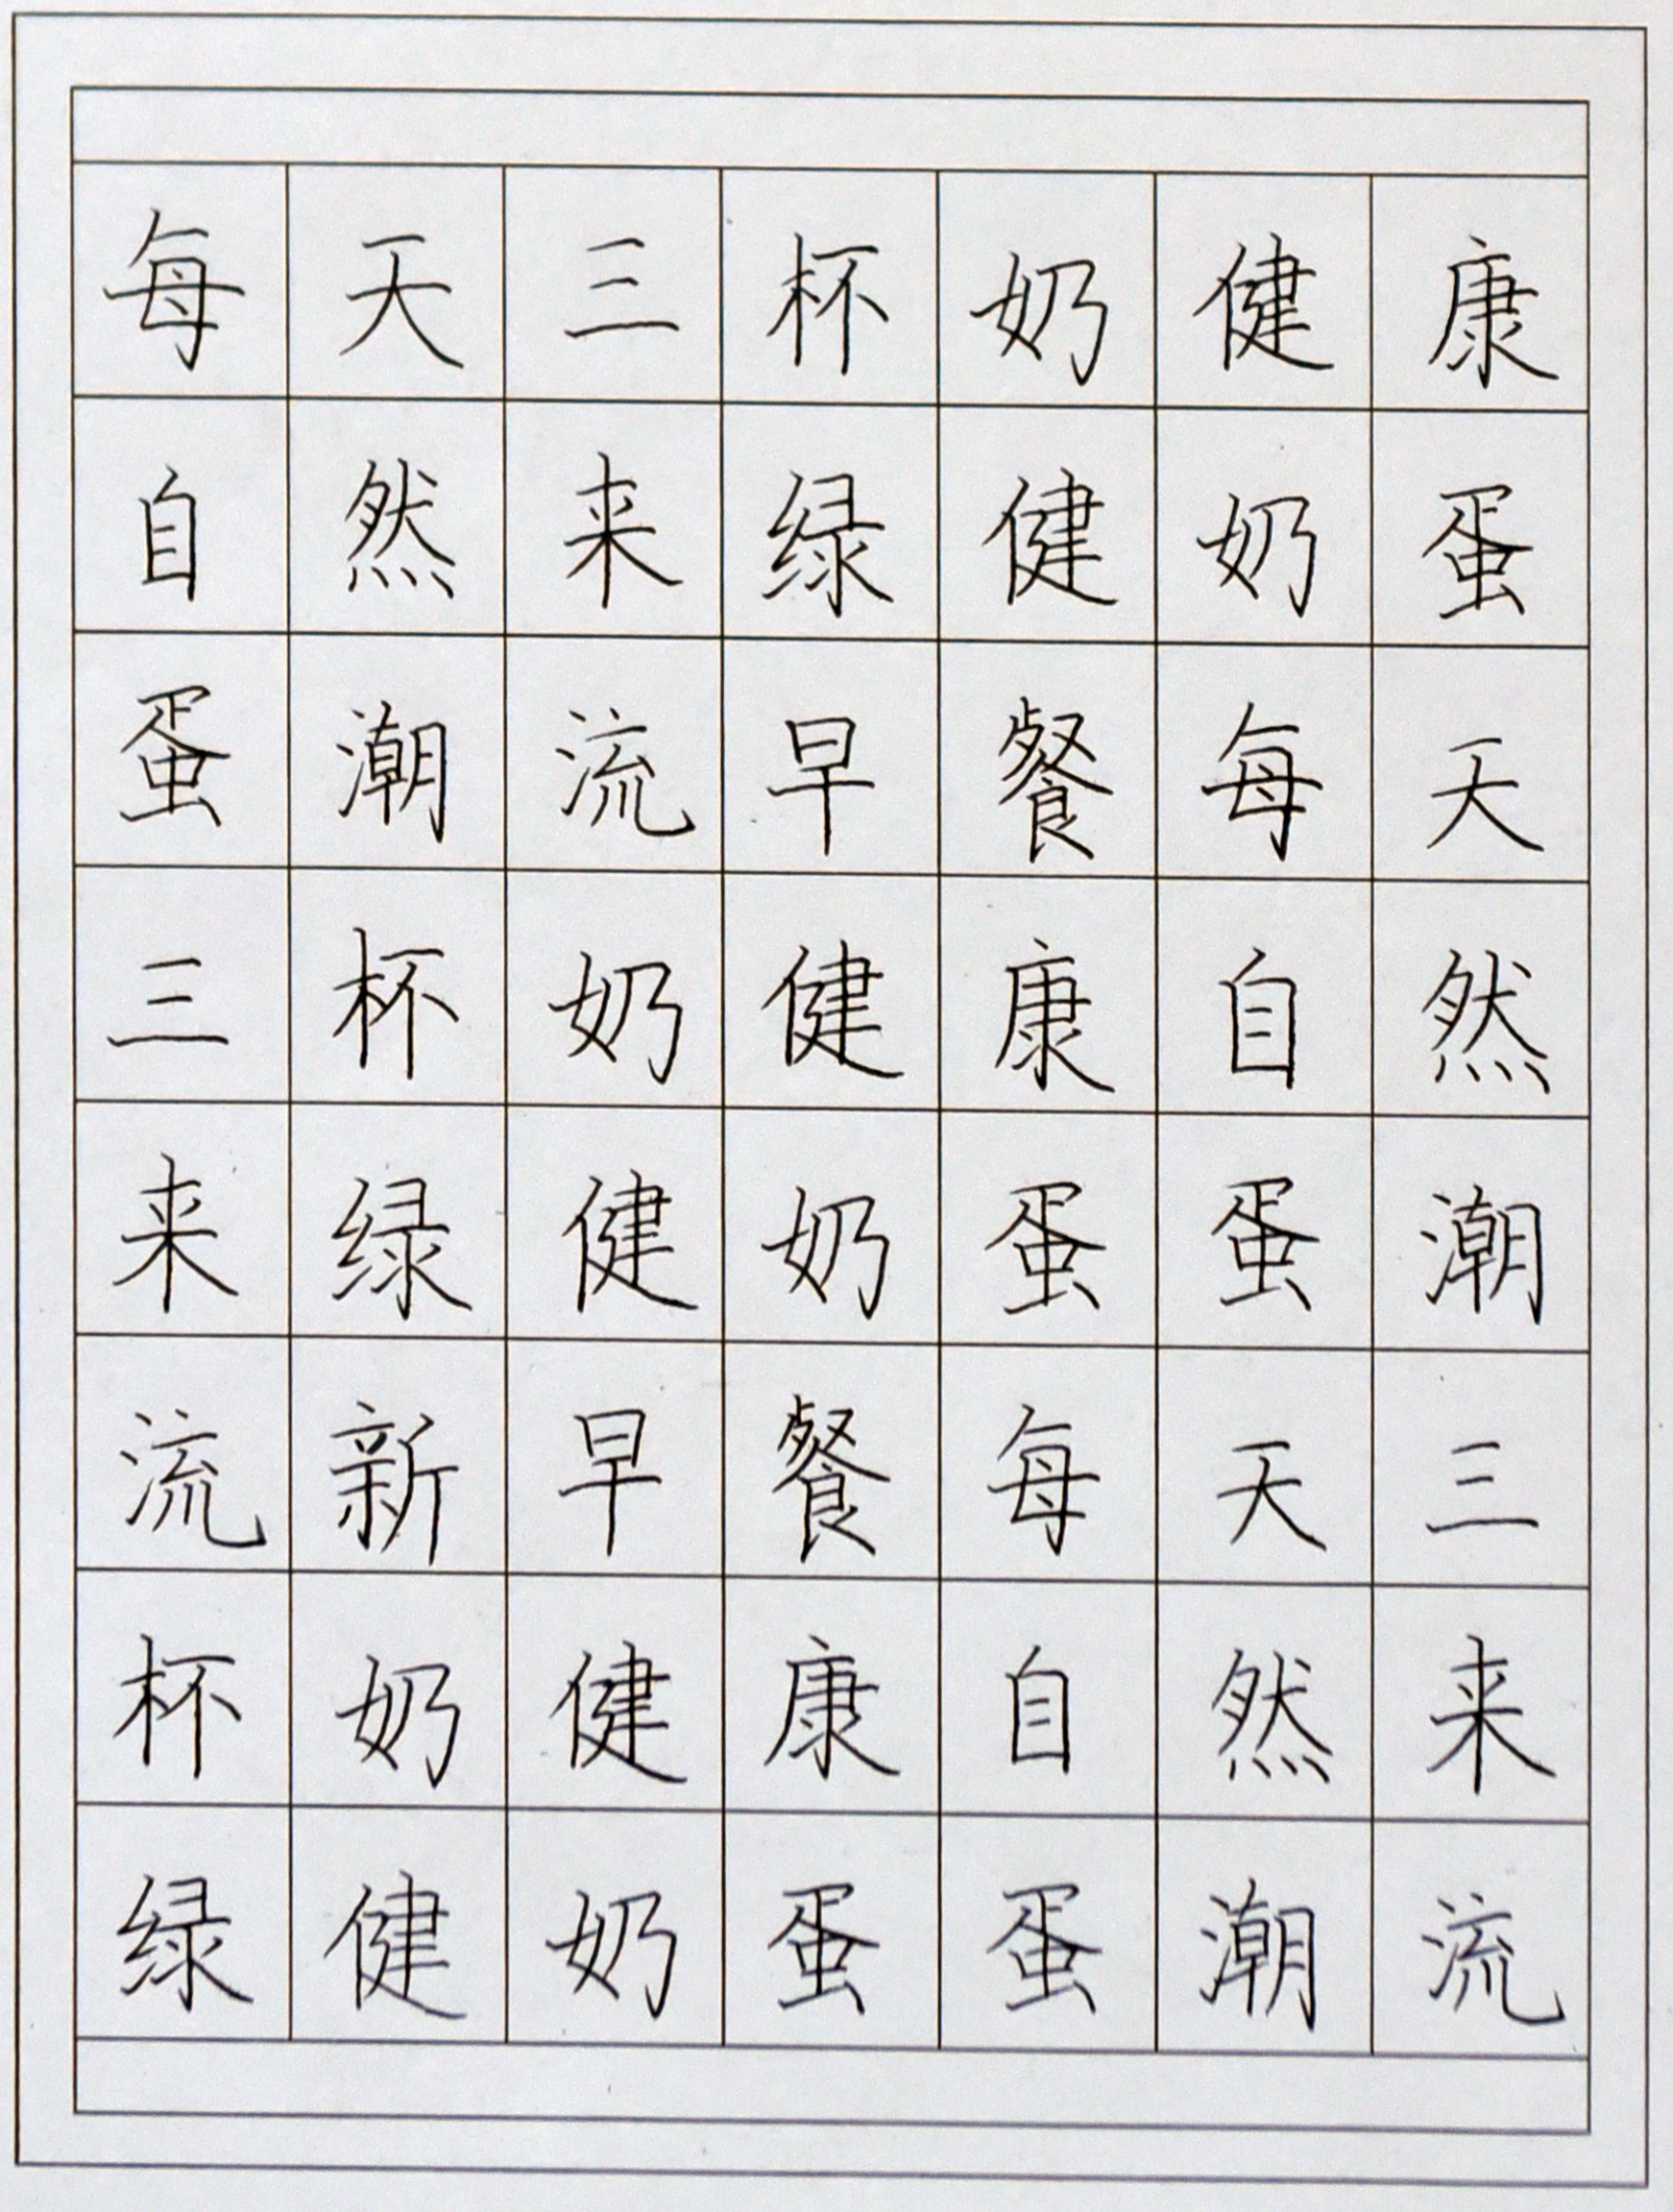 每天三杯奶健康
自然来绿健奶蛋
蛋潮流早餐每天
三杯奶健康自然
来绿健奶蛋蛋潮
流新早餐每天三
杯奶健康自然来
绿健奶蛋蛋潮流